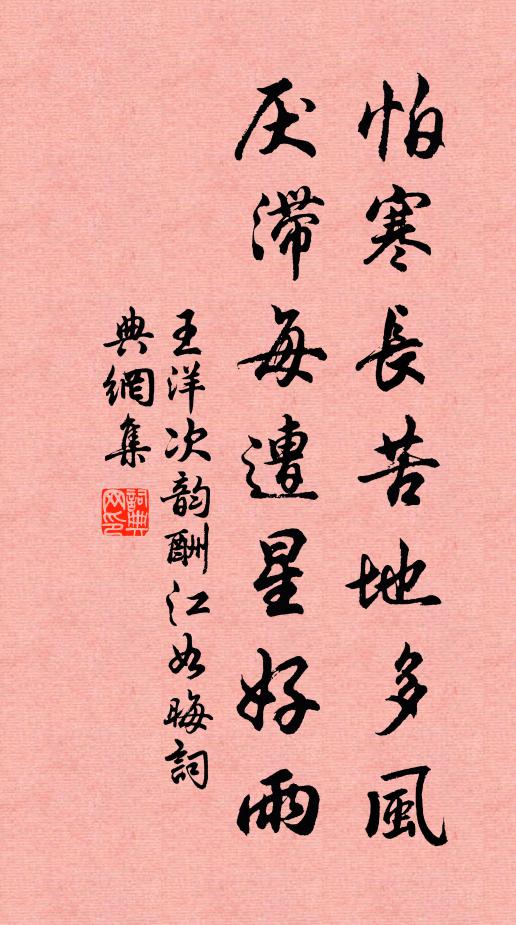 怕寒長苦地多風
厌滯每遭星好雨
王洋次韵酬江如晦詞
典網集
詞典网印